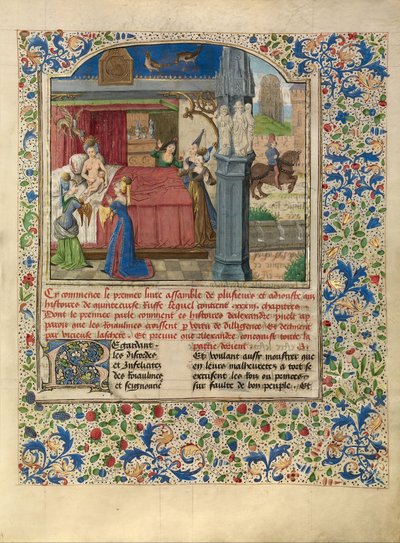 Cy commence le premier livre assamble de plusieurs et adiouste aux
histoires de quinte curse Ruffe Lequel contient xxxiii chapitres
Dont le premier parle comment es histoires dalexandre pielt ap
paroir que les Roiaulmes croissent p vertu de dilligence Et declinent
par vicieuse lascheté Et preuve que Alexandre conquist toute la
partie dorient
Regardant
les discordes
et Infelicites
des Roiaulmes
et seignouries
Et voulant aussi monstrer que
en leurs malheuretes a tort se
excusent les Rois ou princes
sur faulte de bon peuple Et